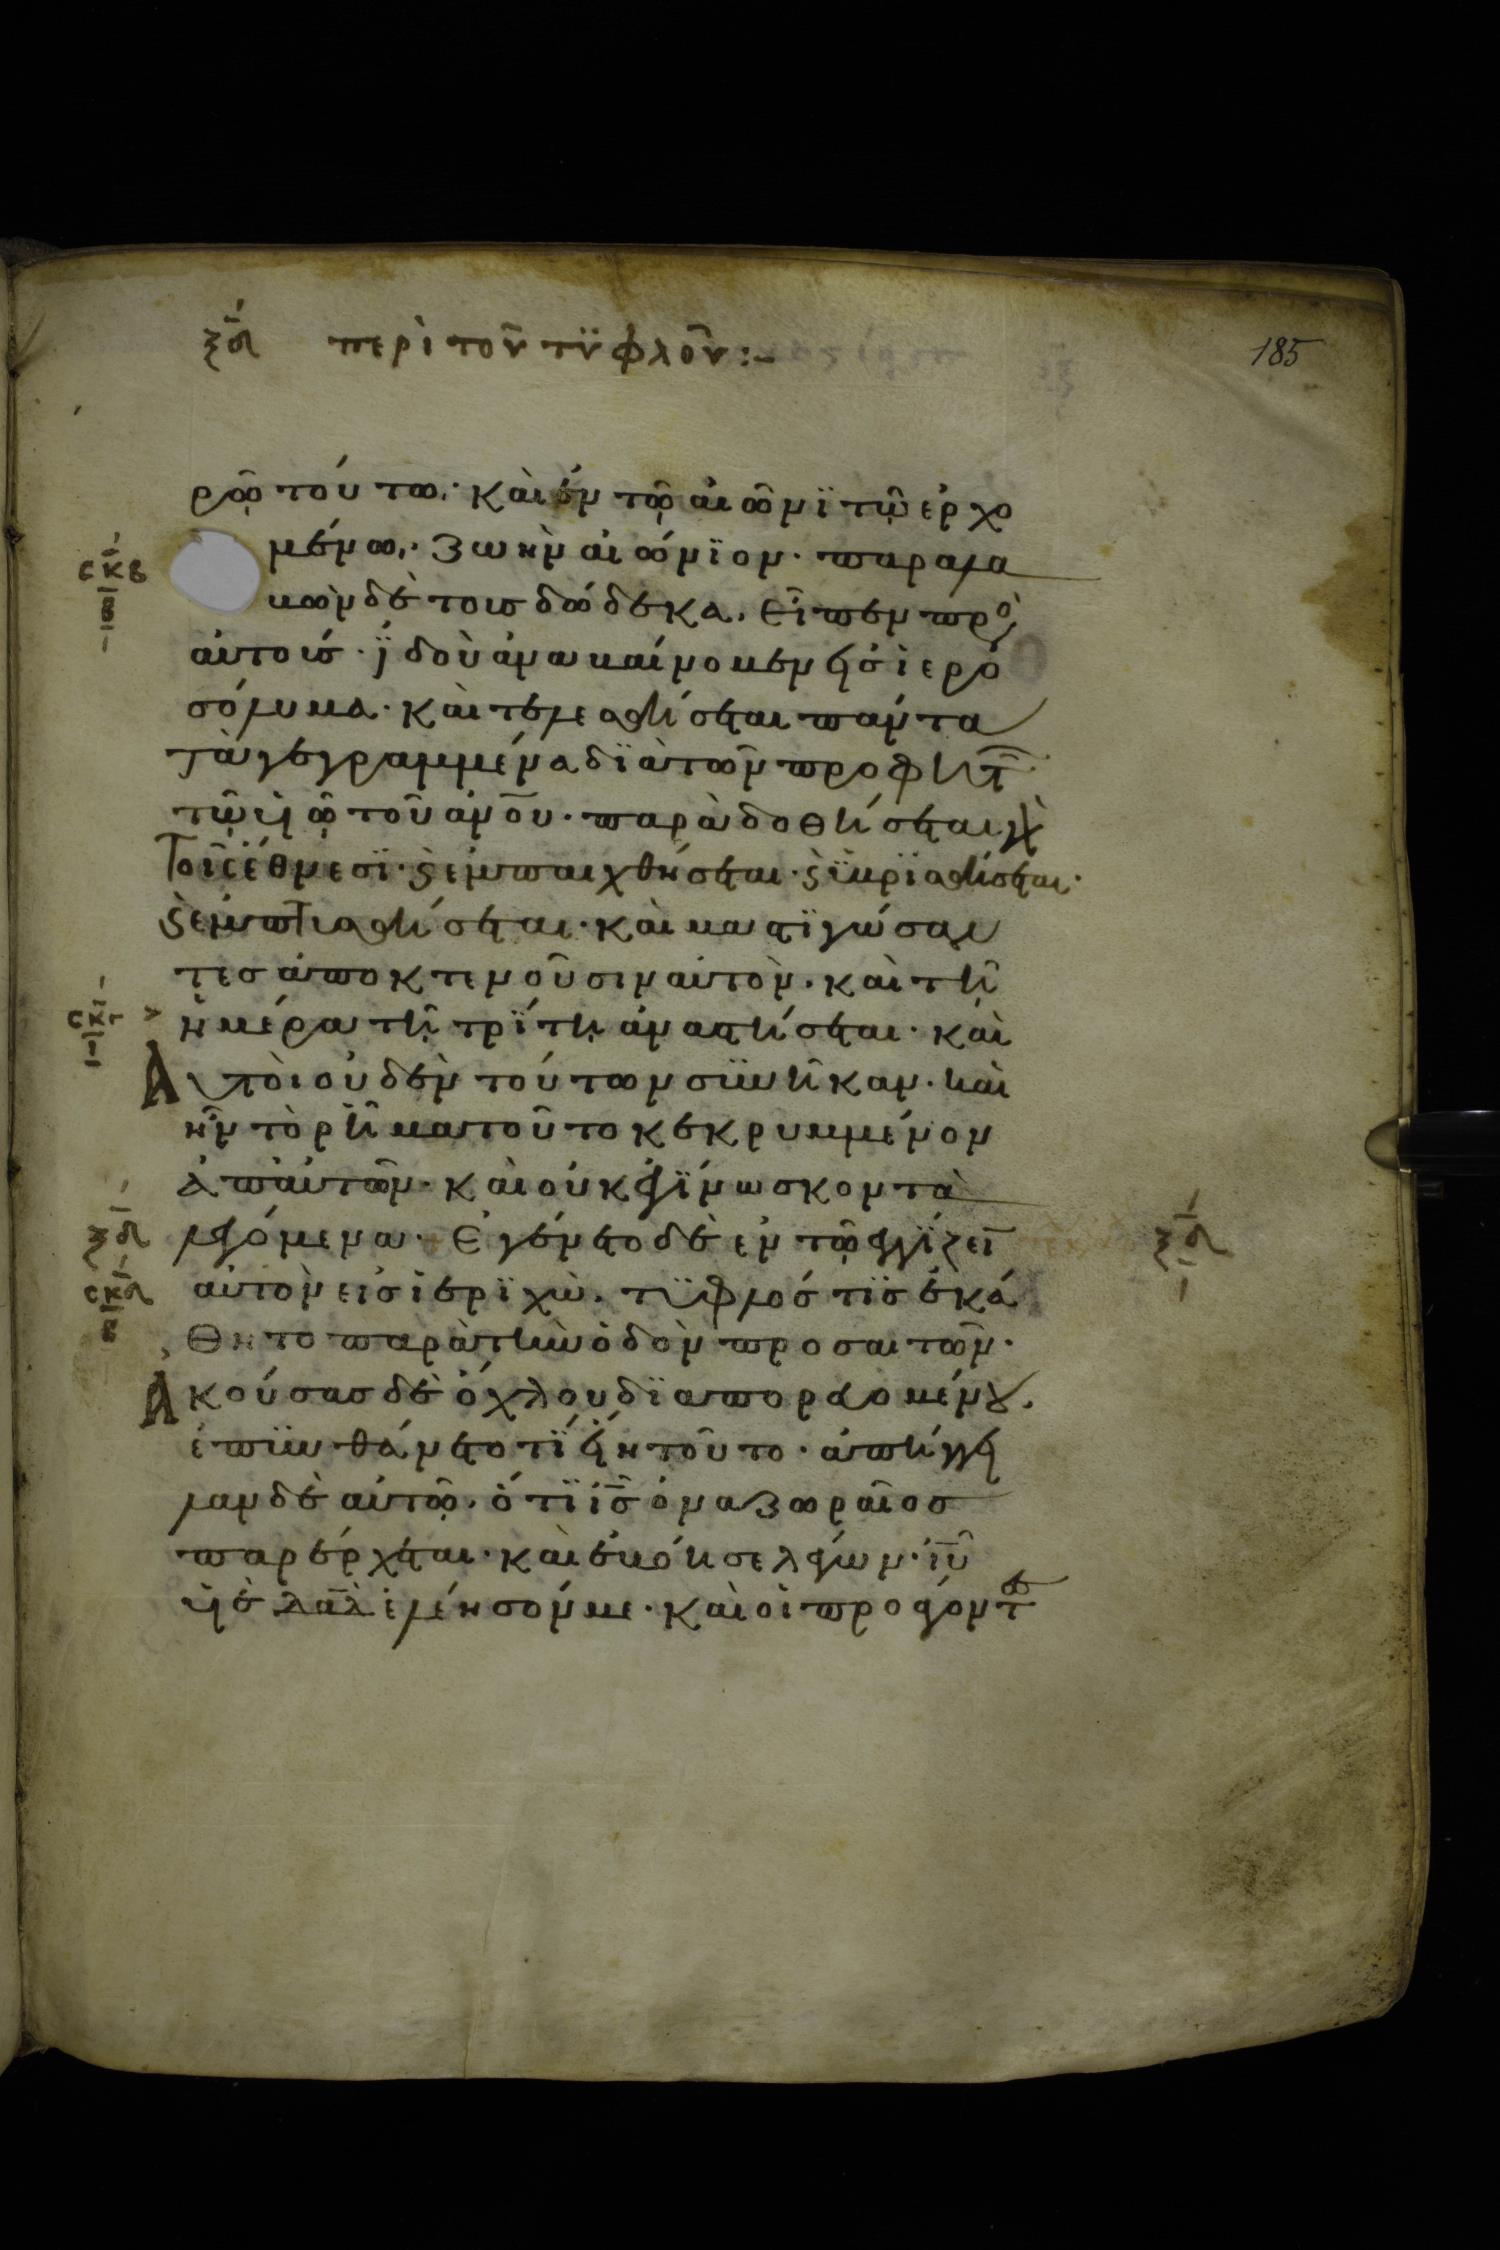 ξδ περὶ τοῦ τϋφλοῦ :-
185
ρῶ τούτω· καὶ ἐν τῶ αἰῶνϊ τῶ ἐρχο
μένω· ζωὴν αἰώνϊον· παραλα
σκβ
β
μὼν δὲ τοισ δώδεκα, εἶπεν πρὸς
αὐτοισ· ϊδοὺ ἀναμαίνομεν εἰσ ἱερο
σόλυμα· καὶ τελεσθήσεται πάντα
τὰ γεγραμμένα δϊὰ τῶν προφητ
τῶ υἱῶ τοῦ ἀνου· παραδοθήσεται γὰρ
τοῖς ἔθνεσϊ· ϛ ἐμπαιχθήσεται· ϛ ὑμρϊσθήσεται·
ϛ ἐμπτυσθήσεται· καὶ μαστϊγώσαν
τεσ ἀποκτενοῦσιν αὐτὸν· καὶ τῆ
σκγ
ι
ἡμέρα τῆ τρίτη ἀναστήσεται· καὶ
Αὐτοὶ οὐδὲν τούτων συνῆκαν· καὶ
ἦν τὸ ρῆμα τοῦτο κεκρυμμένον
ἀπ' αὐτῶν· καὶ οὐκ ἐγϊνωσκον τὰ
ξδ
λεγόμενα· + Ἐγένετο δὲ ἐν τῶ ἐγγϊζειν
ξδ
σκδ
β
αὐτὸν εἰσ ἱερϊχὼ, τϋφλόσ τϊσ ἐκά
θητο παρὰ τὴν ὁδὸν προσαιτῶν·
Ἀκούσασ δὲ ὄχλου δϊαπορευομένου,
ἐπυνθάνετο τί εἴη τοῦτο· ἀπήγγει
λαν δὲ αὐτῶ, ὅτϊ ισ ὁ ναζωραῖοσ
παρέρχεται· καὶ ἐμόησε λέγων· ιυ
υἱὲ δαδ ἐλέησόν με· καὶ οἱ προάγοντ